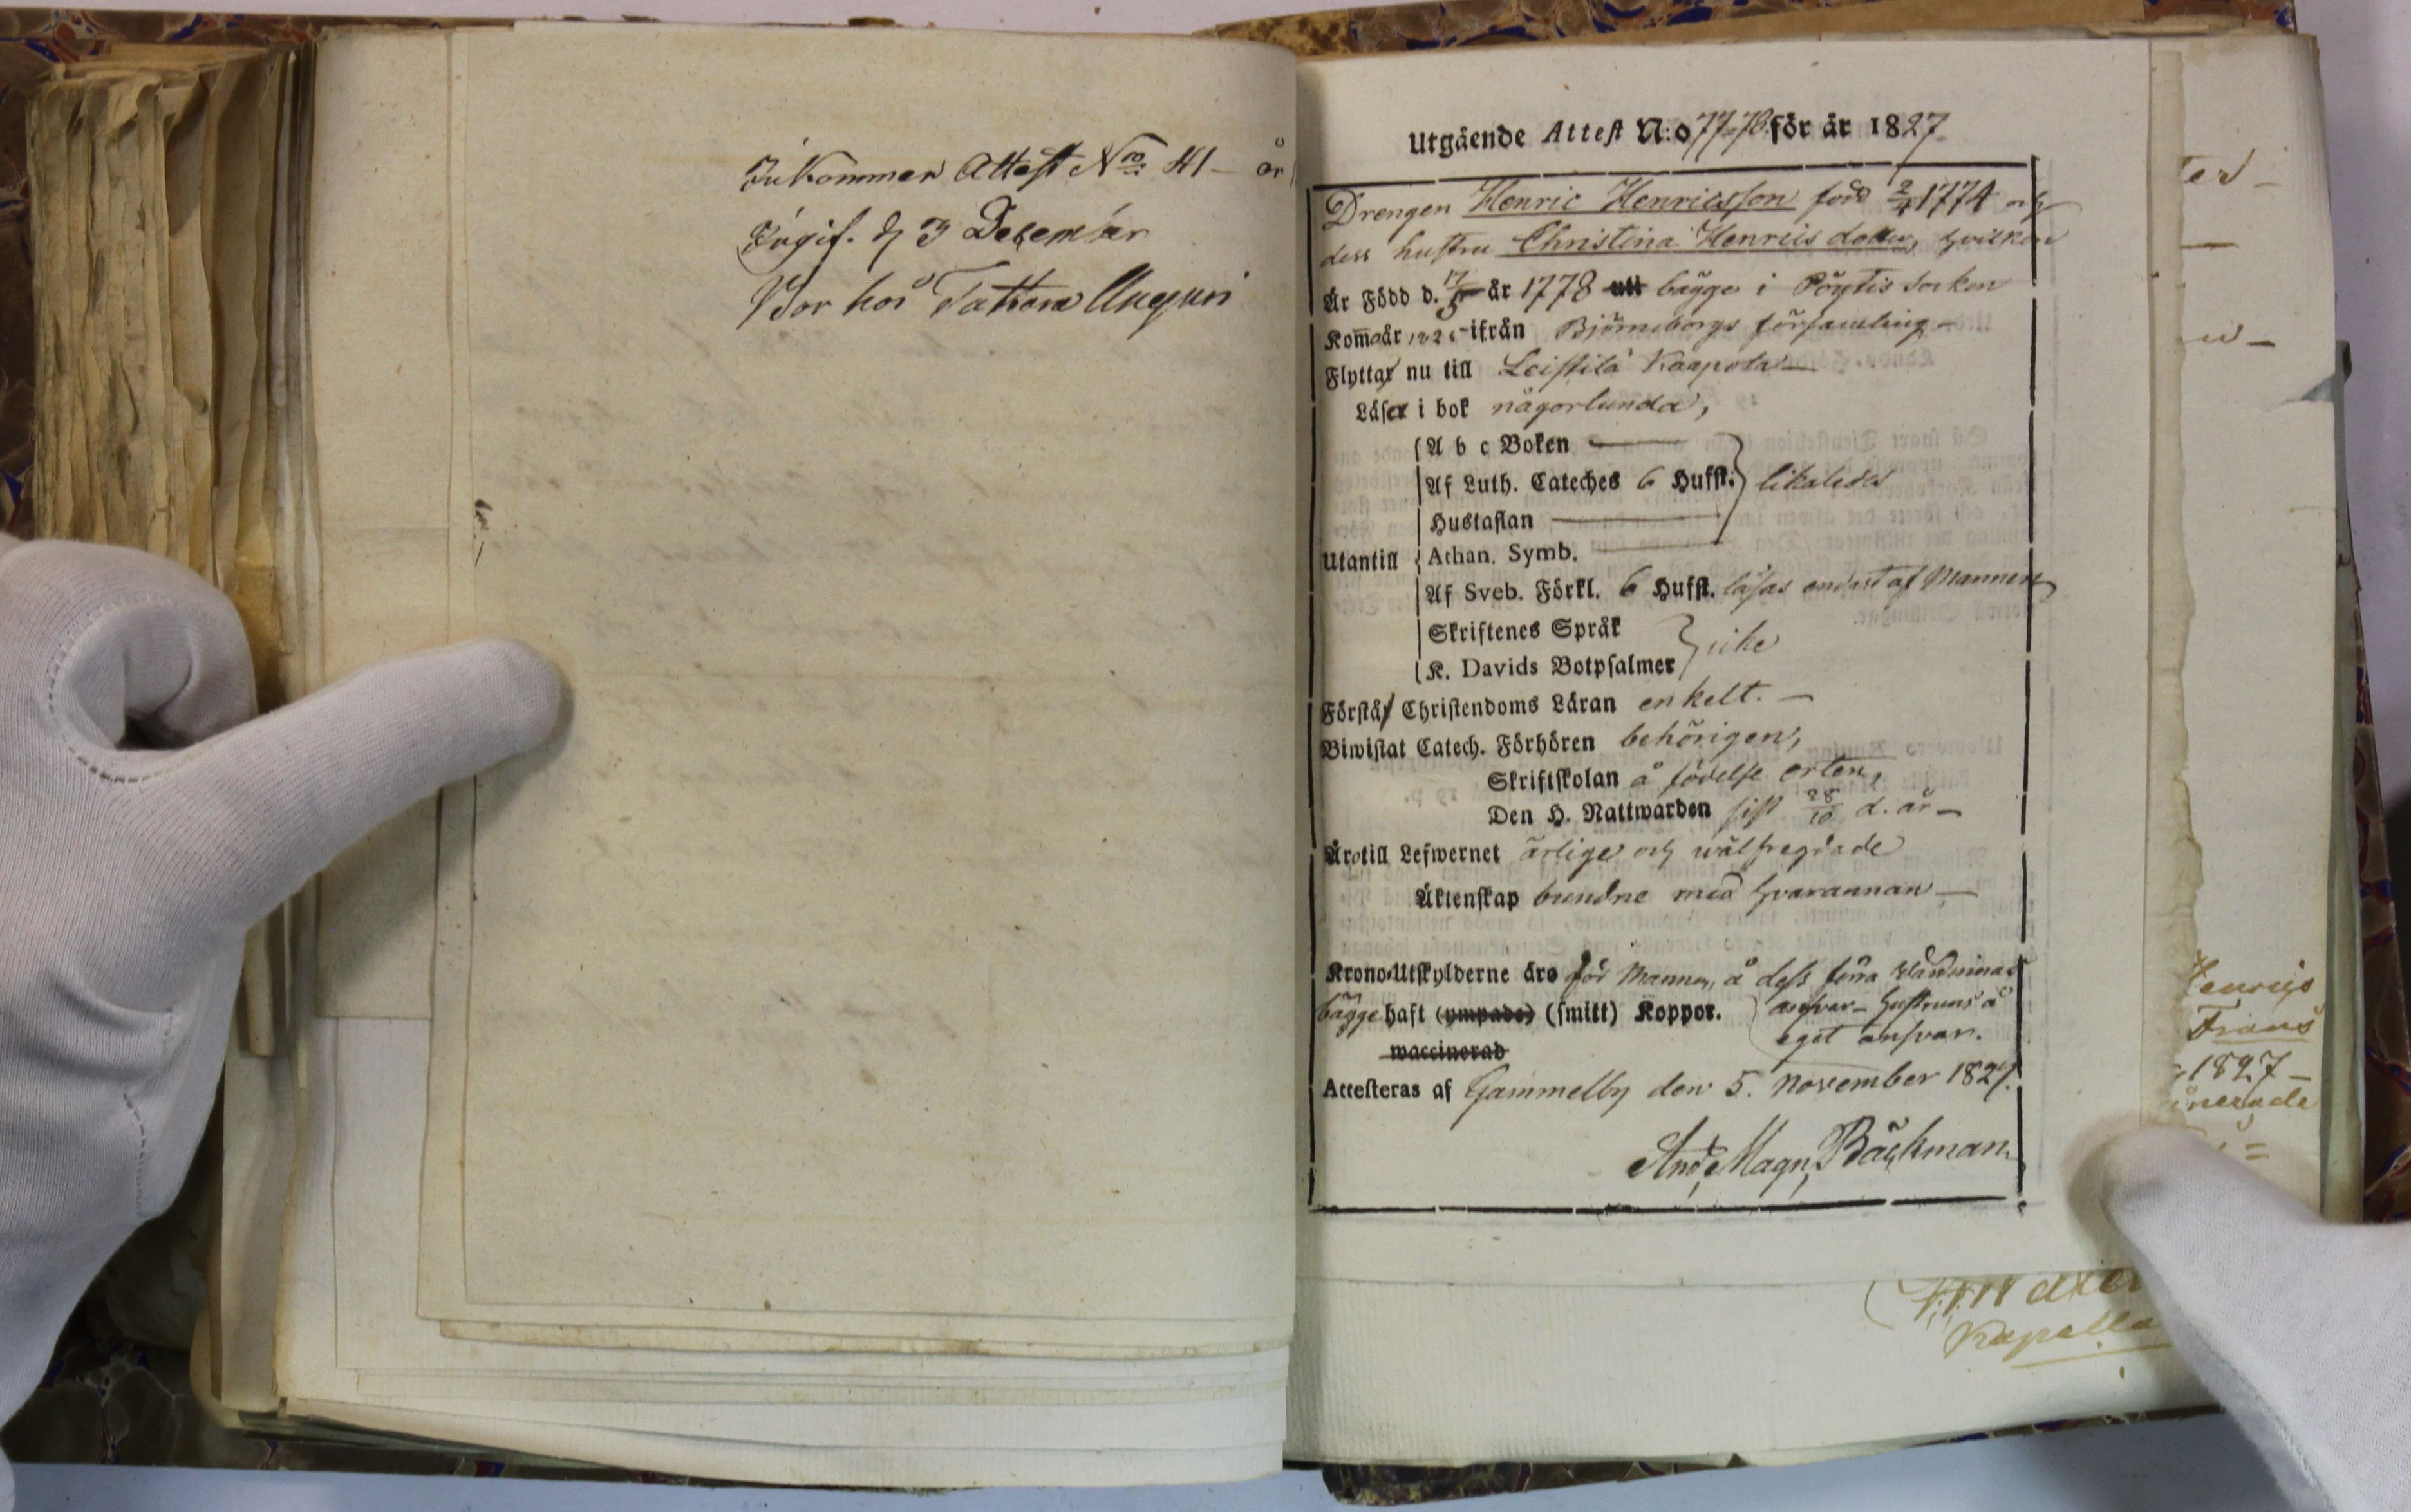 Inkommen Attest No 41 – år
Ingif. d 3 December
Bor hos
Utgående Attest N:o 77-78 för år 1827
Drengen Henric Henricsson född 2/4 1774 och
dess hustru Christina Henricsdotter, hvilken
Är Född d. 17/5 år 1778 utt bägge i Pöytis Socken
Komo år 182 ifrån Björneborgs församling –
Flyttar nu till Leistilä Kaapola –
Läser i bok någorlunda,
A b c Boken
Af Luth. Cateches 6 Hufst. likaledes
Hustaflan
Utantill Athan. Symb.
Af Sveb. Förkl. 6 Hufst. läsas endast af Mannen
Skriftenes Språk
K. Davids Botpsalmer icke
Förstår Christendoms Läran enkelt. –
Biwistat Catech. Förhören behörigen,
Skriftskolan å födelse orten,
Den H. Nattwarden sist 28/10 d. år –
Äro till Lefwernet ärlige och wälfregdade
Äktenskap bundne med hvarannan –
Krono-Utskylderne äro för Mannen, å dess förra
bägge haft (ympade) (smitt) Koppor. answar – hustruns å
waccinerad eget answar.
Attesteras af Gammelby den 5. November 1827.
And. Magn. Bäckman
Henrijs
Frans
1827 –
Kapella